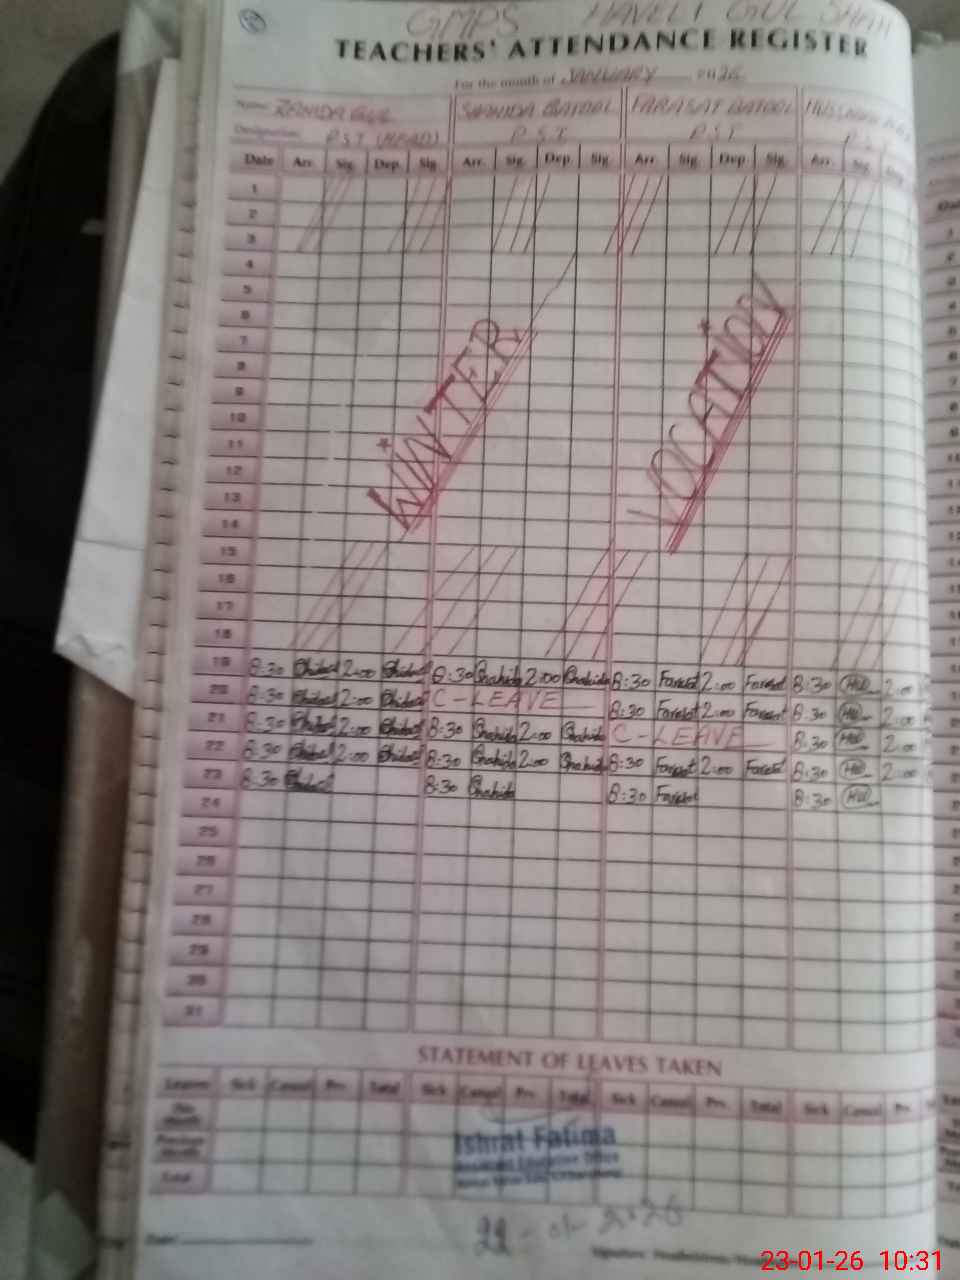 GMPS HAVELI GUL SHAH
TEACHERS' ATTENDANCE REGISTER
For the month of JANUARY 2026
Name: ZAHIDA GUL SHAHIDA BATOOL FARASAT BATOOL
Designation: P.S.T (HEAD) P.S.T P.S.T P.S.T
Date Arr. Sig. Dep. Sig. Arr. Sig. Dep. Sig. Arr. Sig. Dep. Sig. Arr. Sig. Dep.
1
2
3
4
5
6
7
8
9
10
11
12
13
14
* WINTER
* VOCATION
15
16
17
18
19 8:30 2:00 8:30 Shahida 2:00 Shahida 8:30 Farasat 2:00 Farasat 8:30 2:00
20 8:30 2:00 C-LEAVE 8:30 Farasat 2:00 Farasat 8:30 2:00
21 8:30 2:00 8:30 Shahida 2:00 Shahida C-LEAVE 8:30 2:00
22 8:30 2:00 8:30 Shahida 2:00 Shahida 8:30 Farasat 2:00 Farasat 8:30 2:00
23 8:30 8:30 Shahida 8:30 Farasat 8:30
24
25
26
27
28
29
30
31
STATEMENT OF LEAVES TAKEN
Leaves Sick Casual Prv. Total Sick Casual Prv. Total Sick Casual Prv. Total Sick Casual Prv.
This month
Previous month
Total
Ishrat Fatima
Assistant Education Officer
22-01-2026
Date
23-01-26 10:31